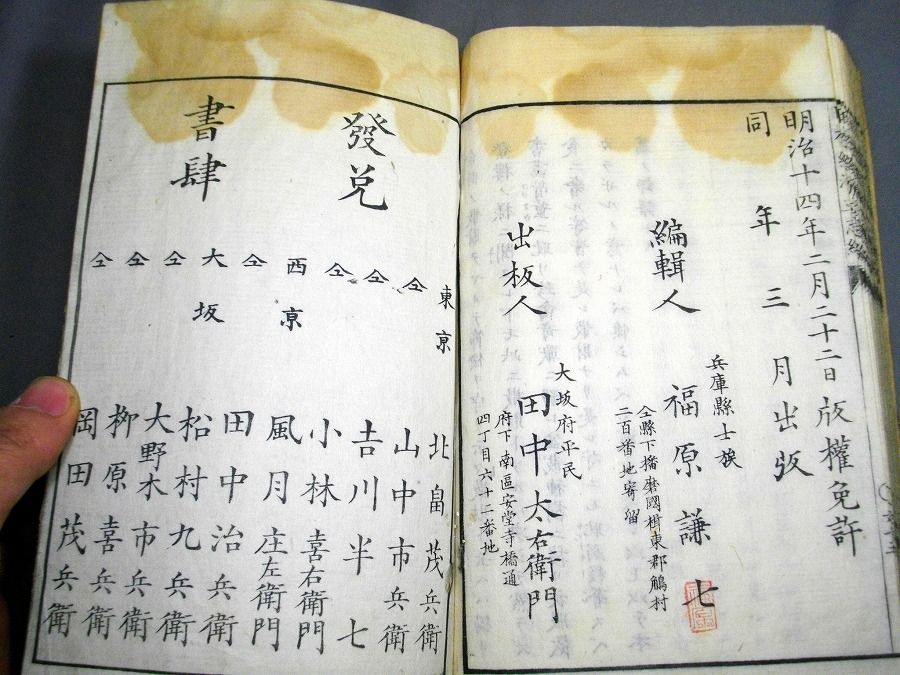 明治十四年二月二十二日版權免許
同年三月出版
兵庫縣士族
編輯人 福原謙七
仝縣下播磨國揖東郡鵤村
二百番地寄留
大坂府平民
出板人 田中太右衛門
府下南區安堂寺橋通
四丁目六十二番地
發兌
書肆
東京 北畠茂兵衛
仝 山中市兵衛
仝 吉川半七
仝 小林喜右衛門
西京 風月庄左衛門
仝 田中治兵衛
大坂 松村九兵衛
仝 大野木市兵衛
仝 柳原喜兵衛
仝 岡田茂兵衛